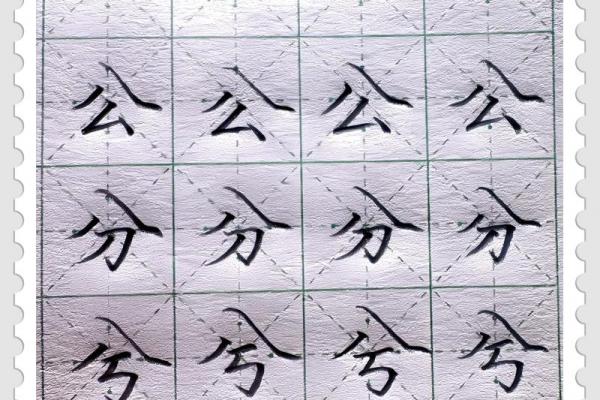 公公公公
分分分分
兮兮兮兮